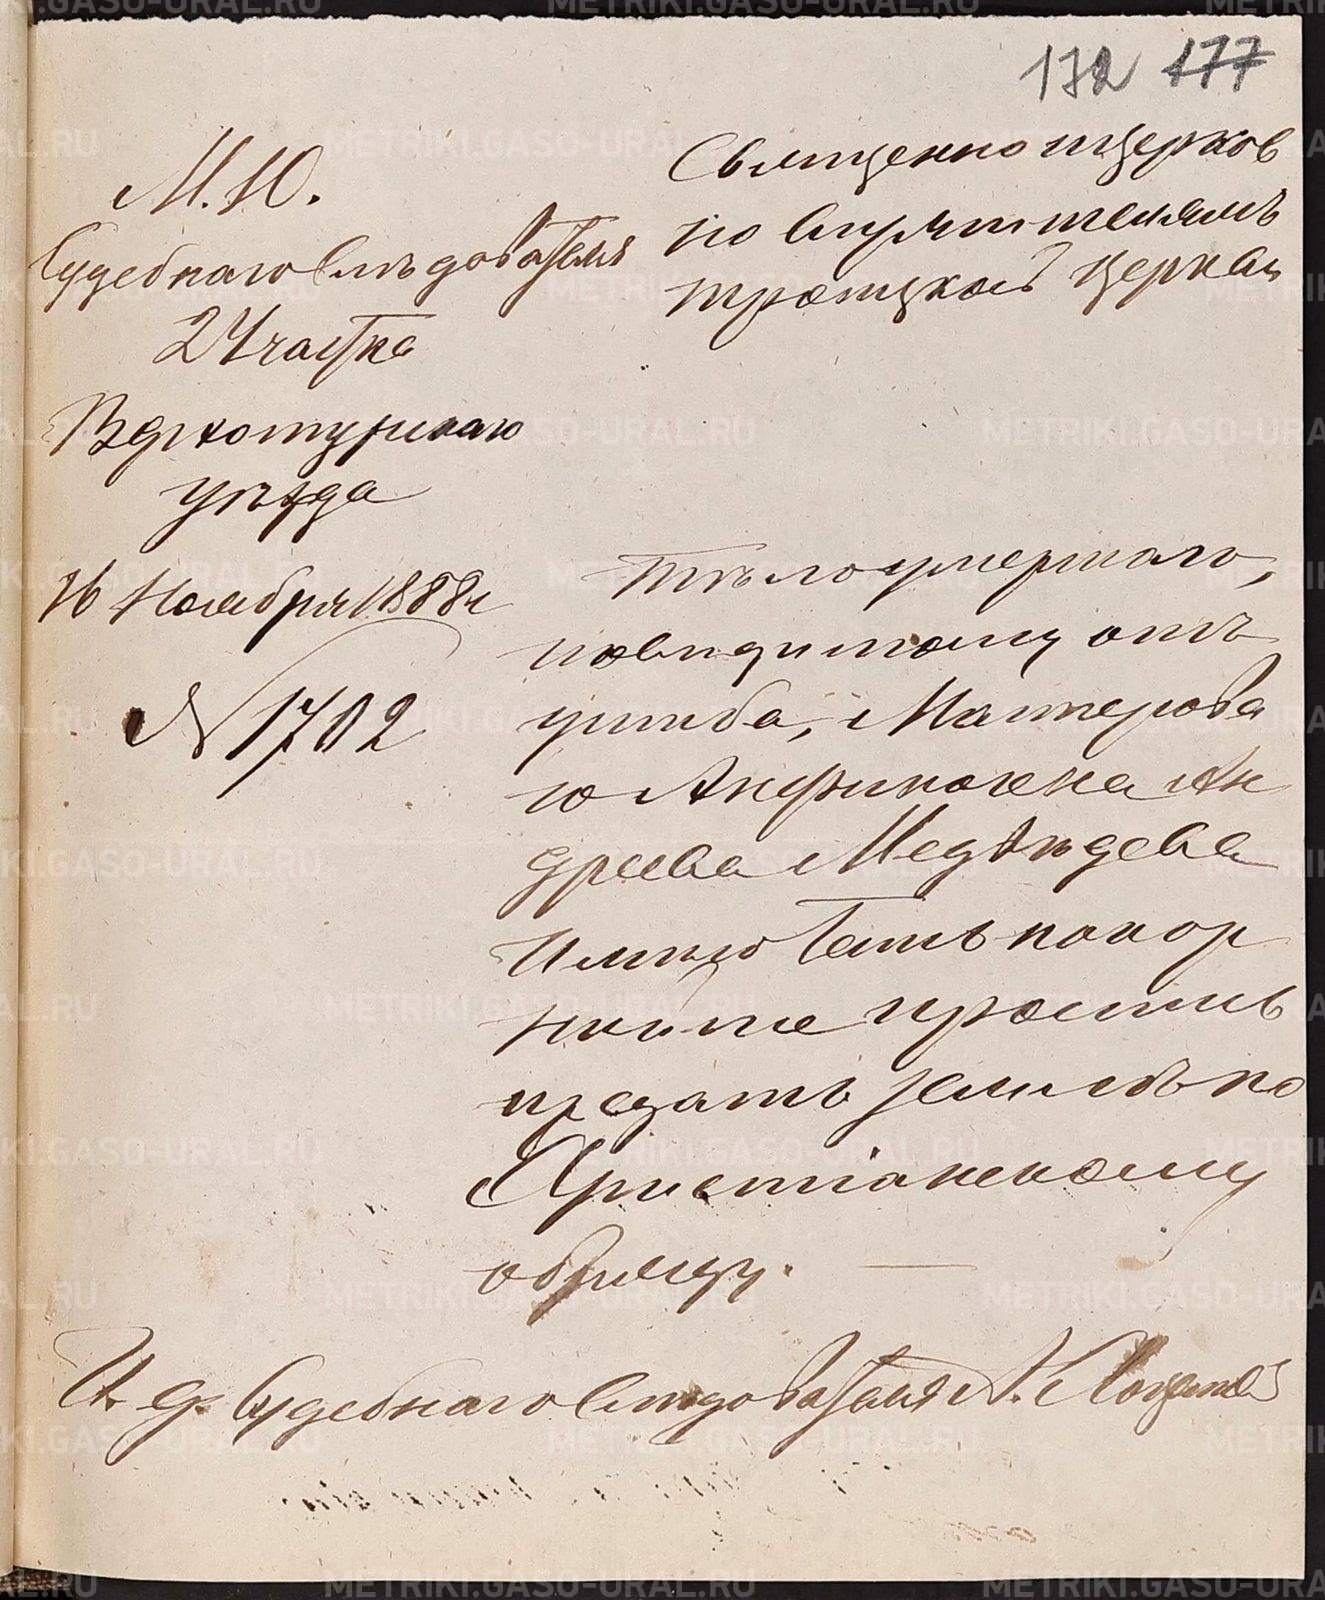 172 177
М. Ю.
Судебнаго Слѣдователя
2 Участка
Верхотурскаго
уѣзда
16 Ноября 1888 г
№ 1702
Священно и церков
но служителямъ
троицкой церкви
Тѣло умершаго,
повидимому отъ
ушиба, Мастерова
го Анфиногена Ан
дреева Медвѣдева
Имѣю честь покор
нѣйше просить
предать землѣ по
Христіанскому
обряду.
И. д. Судебнаго Слѣдователя А.
METRIKI.GASO-URAL.RU